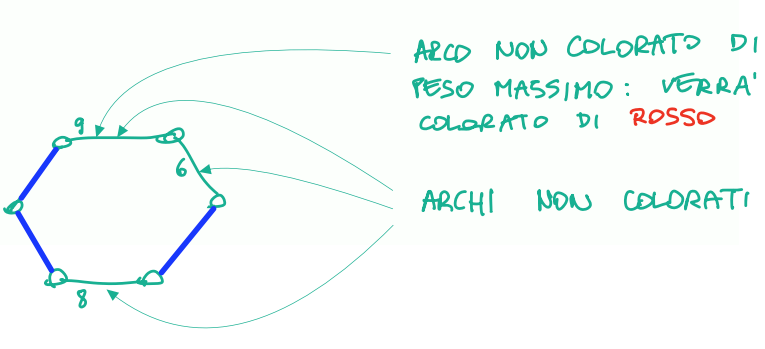 ARCO NON COLORATO DI
PESO MASSIMO: VERRA'
COLORATO DI ROSSO
9
6
ARCHI NON COLORATI
8